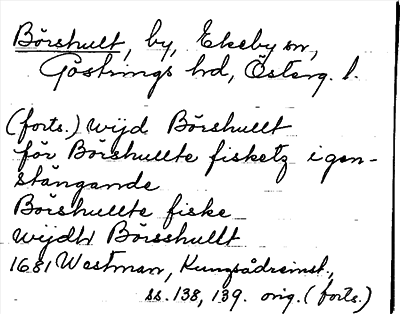 Börshult, by, Ekeby sn,
Göstrings hd, Österg. l.
(forts.) wijd Börshullt
för Börshullte fisketz igen-
stängande
Börshullte fiske
wijdh Börsshullt
1681 Westman, Kungsådreinst.,
ss. 138, 139. orig. (forts.)